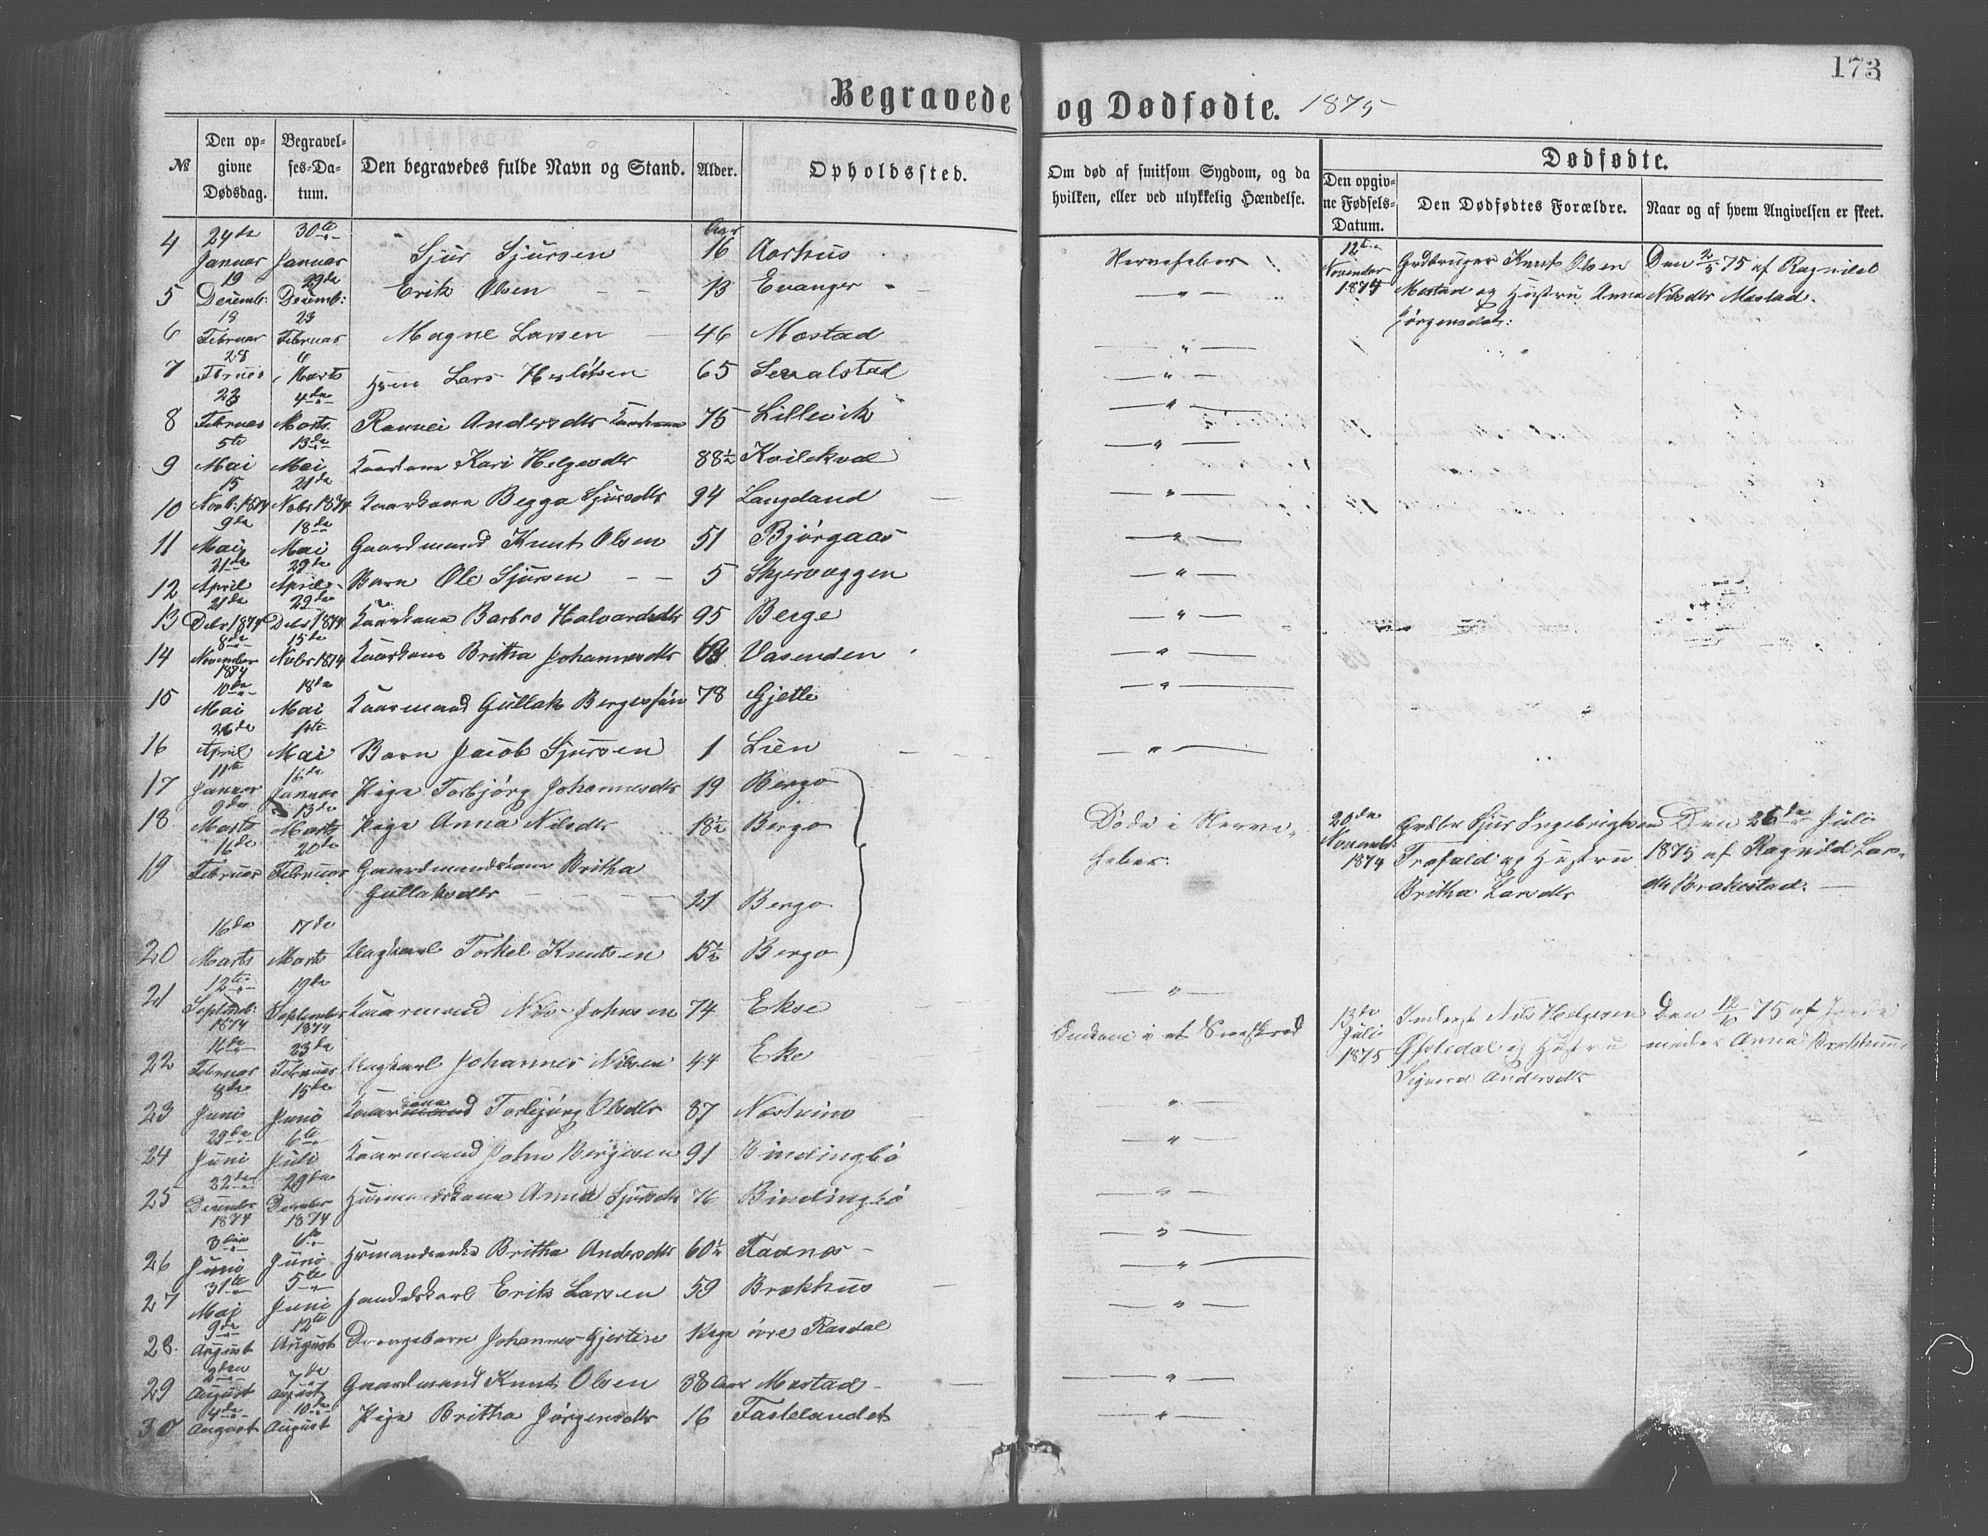 173
Begravede og Dødfødte. 1875
№ Den opgivne Dødsdag. Begravelses-Datum. Den begravedes fulde Navn og Stand. Alder. Opholdssted. Om død af smitsom Sygdom, og da hvilken, eller ved ulykkelig Hændelse. Dødfødte. Den opgivne Fødsels-Datum. Den Dødfødtes Forældre. Naar og af hvem Angivelsen er skeet.
4 24de Januar 30te Januar Sjur Sjursen Aar 16 Aarhus Nervefeber 12te November 1874 Knut Olsen Mestad og Hustru Anna Jørgensdat: Den 2/5 75 af Ragnilde Nilsdtr Mestad.
5 19 Decemb: 29de Decemb: Erik Olsen 13 Evanger — " —
6 19 Februar 23 Februar Magne Larsen 46 Mestad — " —
7 28 Februar 6 Marts Lars 65 — " —
8 23 Februar 4de Marts Ranvei Andersdtr 75 Lillevik — " —
9 5te Mai 13de Mai Kaarkone Kari Helgesdtr 88½ Kvilekval — " —
10 15 Novb: 1874 21de Nobr 1874 Kaarkone Begga Sjursdtr 94 Langeland — " —
11 9de Mai 18de Mai Gaardmand Knut Olsen 51 Bjørgaas — " —
12 21de April 29de April Barn Ole Sjursen 5 Skjerveggen — " —
13 21de Debr 1874 29de Debr 1874 Kaarkone Barbro Halvardsdtr 95 Berge — " —
14 8de November 1874 15de Nobr 1874 Kaarkone Britha Johannesdtr 63 Vasenden — " —
15 10de Mai 18de Mai Kaarmand Gullak Bergesen 78 Gjetle — " —
16 26de April 1ste Mai Barn Jacob Sjursen 1 Lien — " —
17 11te Januar 16de Januar Pige Torbjørg Johannesdtr 19 Bergo
18 9de Marts 13de Marts Pige Anna Nilsdtr 18½ Bergo Døde i Nervefeber. 20de Novemb: 1874 Sjur Ingebrigtsen Trefald og Hustru Britha Larsdtr Den 26de Juli 1875 af Ragnild Larsdtr Brakestad.
19 16de Februar 20de Februar Gaardmandskone Britha Gullaksdtr 21 Bergo
20 16de Marts 17de Marts Ungkarl Torkel Knutsen 15½ Bergo
21 12te Septemb: 1874 19de September 1874 Kaarmand Nils Johnsen 74 Ekse — " —
22 14de Februar 23de Februar Ungkarl Johannes Nilsen 44 Eke Omkom i et Sneskred 13de Juli 1875 Inderst Nils Helgesen og Hustru Sigvora Andersdtr Den 12/10 75 af Anna
23 8de Juni 15de Juni Kaarkone Torbjørg Olsdtr 87 — " —
24 29de Juni 6te Juli Kaarmand John Bergesen 91 Bindingbø — " —
25 22de December 1874 29de December 1874 Husmandskone Anna Sjursdtr 76 Bindingbø — " —
26 3die Juni 6te Juni Britha Andersdtr 60½ Favnes — " —
27 31te Mai 5te Juni Erik Larsen 59 Brækhus — " —
28. 9de August 12te August Drengebarn Johannes Gjertsen øvre Rasdal — " —
29 3den August 7de August Gaardmand Knut Olsen 38 Aar Mestad — " —
30 4de August 10de August Pige Britha Jørgensdtr 16 Fastelandet — " —